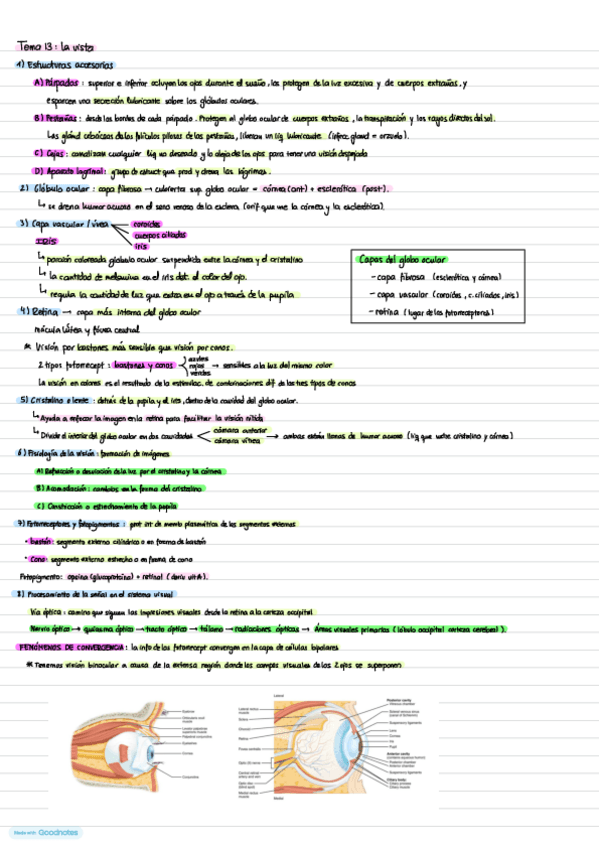 Tema 13: La vista
1) Estructuras accesorias
A) Párpados: superior e inferior ocluyen los ojos durante el sueño, los protegen de la luz excesiva y de cuerpos extraños, y
esparcen una secreción lubricante sobre los glóbulos oculares.
B) Pestañas: desde los bordes de cada párpado. Protegen al globo ocular de cuerpos extraños, la transpiración y los rayos directos del sol.
Las gland sebáceas de los folículos pilosos de las pestañas, liberan un líq lubricante (infecc gland = orzuelo).
C) Cejas: canalizan cualquier líq no deseado y lo aleja de los ojos para tener una visión despejada
D) Aparato lagrimal: grupo de estruct que prod y drena las lágrimas.
2) Glóbulo ocular: capa fibrosa → cubierta sup. globo ocular = córnea (ant) + esclerótica (post).
↳ se drena humor acuoso en el seno venoso de la esclera (orif que une la córnea y la esclerótica).
3) Capa vascular / úvea
coroides
cuerpos ciliados
iris
IRIS
↳ porción coloreada globulo ocular suspendida entre la córnea y el cristalino
↳ la cantidad de melanina en el iris det. el color del ojo.
↳ regula la cantidad de luz que entra en el ojo a través de la pupila
Capas del globo ocular
- capa fibrosa (esclerótica y córnea)
- capa vascular (coroides, c. ciliados, iris)
- retina (lugar de los fotorreceptores)
4) Retina → capa más interna del globo ocular
mácula lútea y fóvea central
* Visión por bastones más sensible que visión por conos.
2 tipos fotorrecept: bastones y conos
azules
rojos
verdes
→ sensibles a la luz del mismo color
La visión en colores es el resultado de la estimulac. de combinaciones dif de los tres tipos de conos
5) Cristalino o lente: detrás de la pupila y el iris, dentro de la cavidad del globo ocular.
↳ Ayuda a enfocar la imagen en la retina para facilitar la visión nítida
↳ Divide el interior del globo ocular en dos cavidades
cámara anterior
cámara vítrea
→ ambas están llenas de humor acuoso (líq que nutre cristalino y córnea)
6) Fisiología de la visión: formación de imágenes
A) Refracción o desviación de la luz por el cristalino y la córnea
B) Acomodación: cambios en la forma del cristalino
C) Constricción o estrechamiento de la pupila
7) Fotorreceptores y fotopigmentos: prot int de memb plasmática de los segmentos externos
· bastón: segmento externo cilíndrico o en forma de bastón
· Cono: segmento externo estrecho o en forma de cono
Fotopigmento: opsina (glucoproteína) + retinal (deriv vit A).
8) Procesamiento de la señal en el sistema visual
Vía óptica: camino que siguen las impresiones visuales desde la retina a la corteza occipital
Nervio óptico → quiasma óptico → tracto óptico → tálamo → radiaciones ópticas → Áreas visuales primarias (lóbulo occipital corteza cerebral).
FENÓMENOS DE CONVERGENCIA: la info de los fotorrecept convergen en la capa de células bipolares
* Tenemos visión binocular a causa de la extensa región donde los campos visuales de los 2 ojos se superponen
Made with Goodnotes